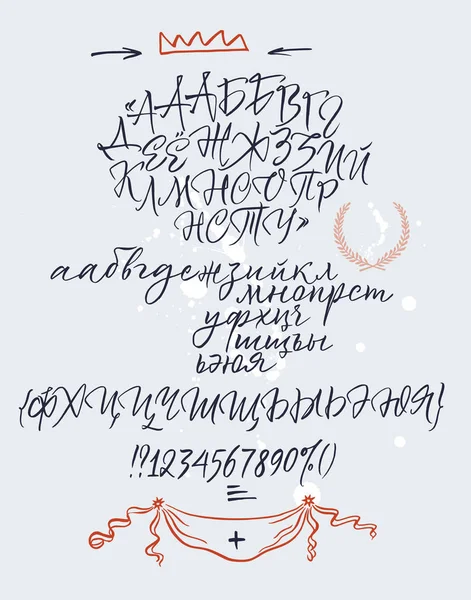 «АААБББВГГ
ДЕЁЖЖЗЗИЙ
КЛМНСОПР
НСТУ»
аабвгдежзийкл
мнопрст
уфхцч
шщъы
ьэюя
{ФХЦЦЧШЩЪЫЬЭЮЯ}
!?1234567890%()
+